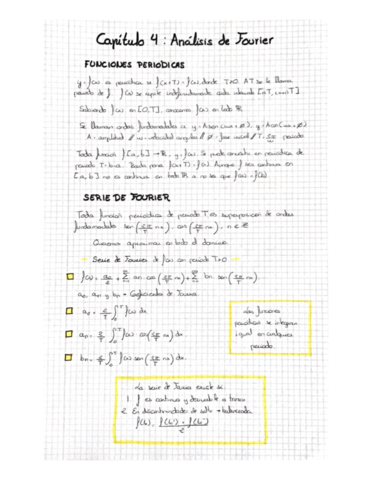 Capítulo 4: Análisis de Fourier
FUNCIONES PERIODICAS
y = f(x) es periódica si f(x+T) = f(x) donde T>0. A T se le llama
periodo de f. f(x) se repite indefinidamente cada intervalo [nT, (n+1)T]
Sabiendo f(x) en [0,T], conocemos f(x) en todo ℝ
Se llaman ondas fundamentales a y = A sen(ωx + ø), y = A cos(ωx + ø).
A = amplitud // ω = velocidad angular // ø = fase inicial // T = 2π/ω periodo
Toda función f[a,b] → ℝ, y = f(x). Se puede convertir en periódica de
periodo T = b-a. Basta poner f(x+T) = f(x). Aunque f sea continua en
[a,b] no es continua en todo ℝ a no ser que f(a) = f(b).
SERIE DE FOURIER
Toda función periódica de periodo T es superposición de ondas
fundamentales sen(2π/T nx), cos(2π/T nx), n ∈ ℤ
Queremos aproximar en todo el dominio.
Serie de Fourier de f(x) con periodo T>0
f(x) = a₀/2 + Σ an cos(2π/T nx) + Σ bn sen(2π/T nx)
a₀, an y bn = Coeficientes de Fourier.
a₀ = 2/T ∫₀ᵀ f(x) dx
an = 2/T ∫₀ᵀ f(x) cos(2π/T nx) dx.
bn = 2/T ∫₀ᵀ f(x) sen(2π/T nx) dx.
Las funciones
periódicas se integran
igual en cualquier
periodo.
La serie de Fourier existe si:
1. f es continua y derivable a trozos
2. En discontinuidades de salto →